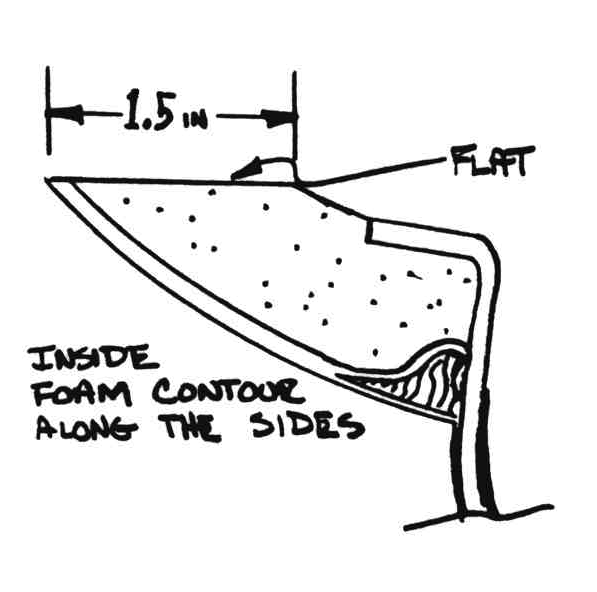 1.5 IN
FLAT
INSIDE
FOAM CONTOUR
ALONG THE SIDES